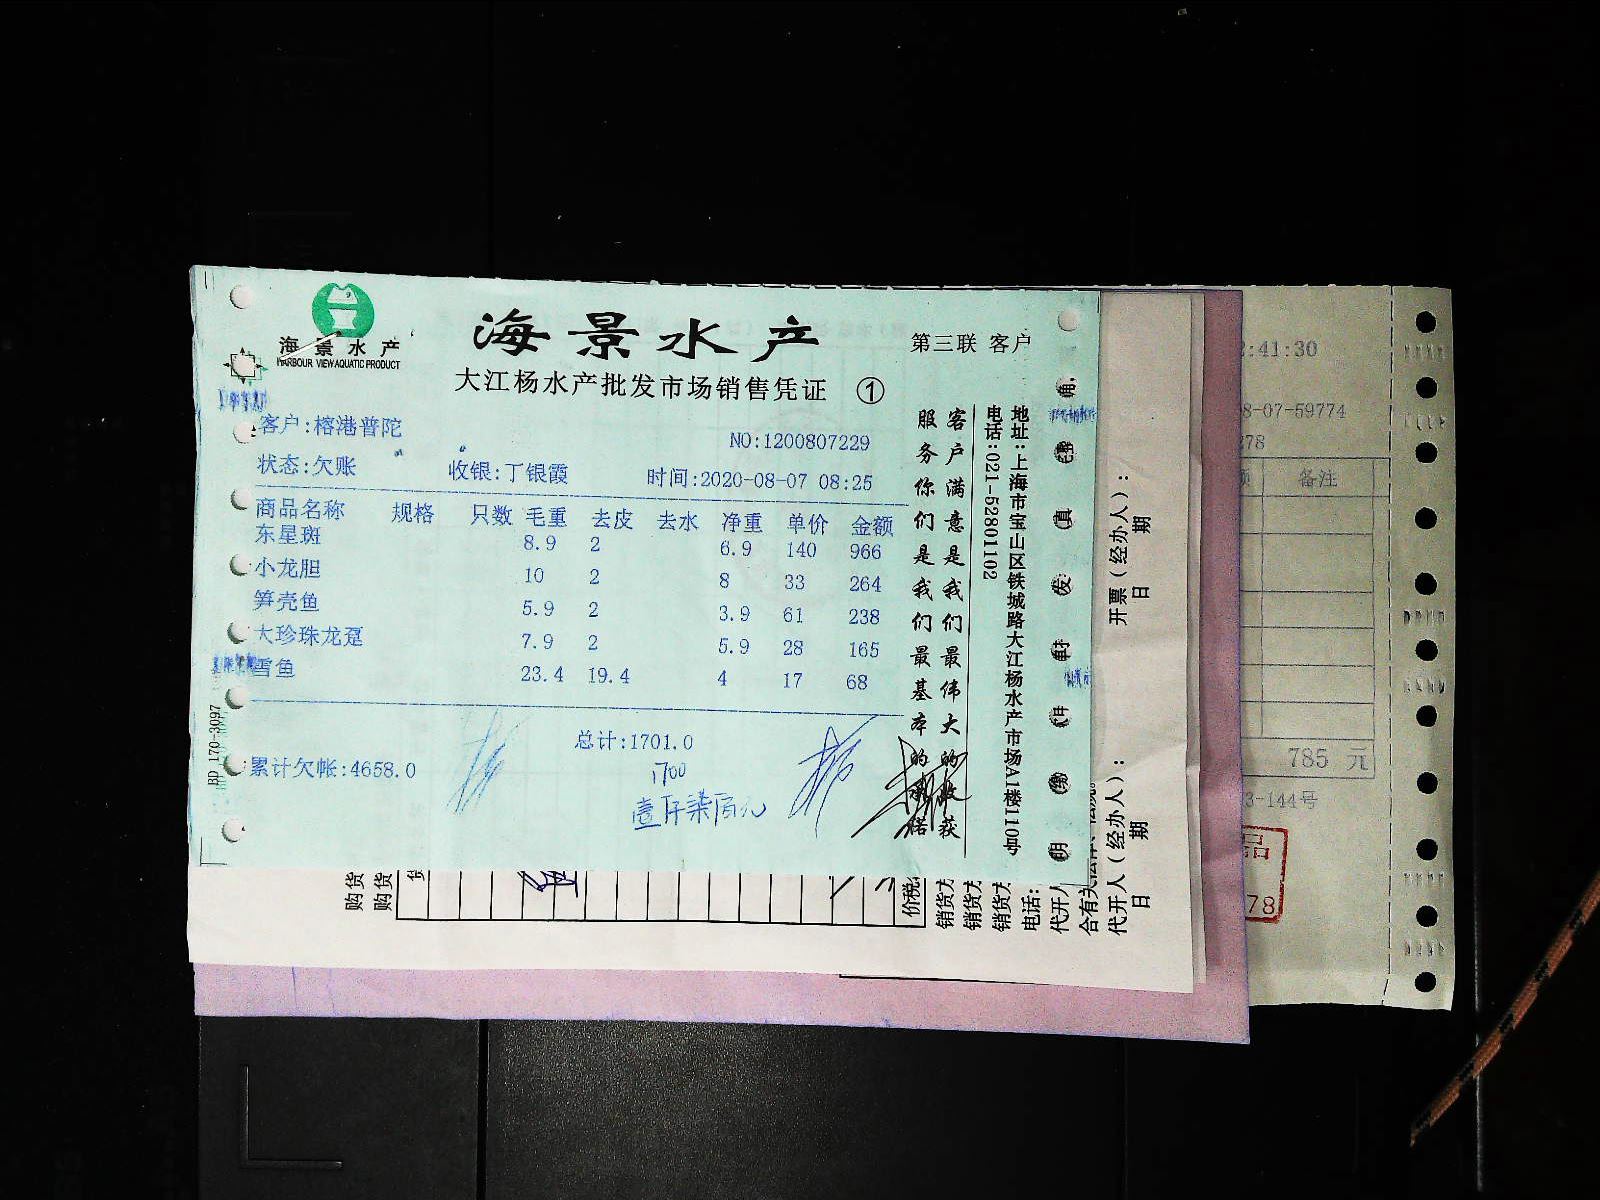 海景水产
HARBOUR VIEW AQUATIC PRODUCT
海景水产
第三联 客户
大江杨水产批发市场销售凭证 ①
客户:榕港普陀
NO:1200807229
状态:欠账 收银:丁银霞 时间:2020-08-07 08:25
商品名称 规格 只数 毛重 去皮 去水 净重 单价 金额
东星斑 8.9 2 6.9 140 966
小龙胆 10 2 8 33 264
笋壳鱼 5.9 2 3.9 61 238
大珍珠龙趸 7.9 2 5.9 28 165
雪鱼 23.4 19.4 4 17 68
总计:1701.0
累计欠帐:4658.0
1700
壹仟柒佰元
BD 170-3097
客户满意是我们最伟大的收获
服务你们是我们最基本的承诺
地址:上海市宝山区铁城路大江杨水产市场A1楼110号
电话:021-52801102
购货
购货
货
价税
销货方
销货方
销货方
电话:
代开人
合有关法律、法规。
代开人(经办人):
日 期
开票(经办人):
日 期
:41:30
8-07-59774
278
备注
785 元
3-144号
78